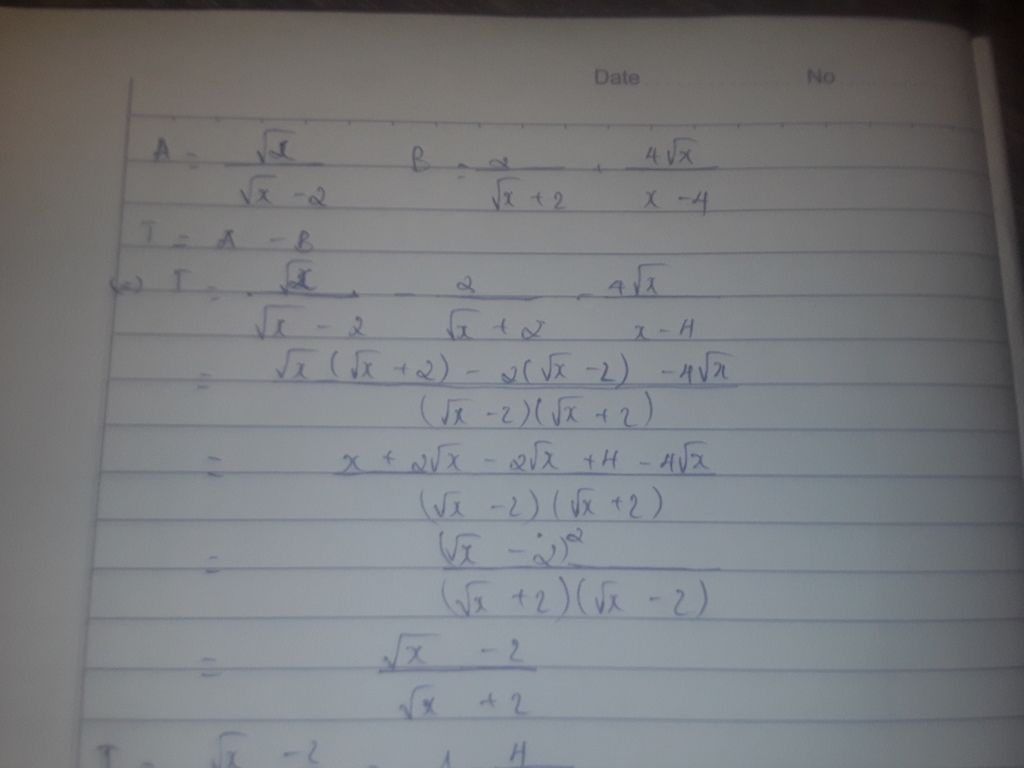 Date No
A = √x / (√x - 2) B = 2 / (√x + 2) + 4√x / (x - 4)
T = A - B
(=) T = √x / (√x - 2) - 2 / (√x + 2) - 4√x / (x - 4)
= (√x (√x + 2) - 2(√x - 2) - 4√x) / ((√x - 2)(√x + 2))
= (x + 2√x - 2√x + 4 - 4√x) / ((√x - 2)(√x + 2))
= (√x - 2)² / ((√x + 2)(√x - 2))
= (√x - 2) / (√x + 2)
T = √x - 2 = 1 4